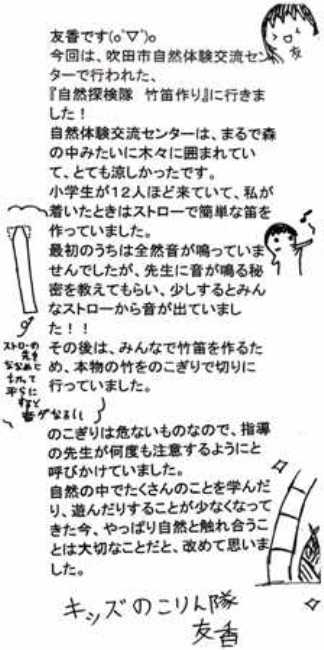 友香です(o'▽')o
今回は、吹田市自然体験交流セン
ターで行われた、
『自然探検隊　竹笛作り』に行きま
した！
自然体験交流センターは、まるで森
の中みたいに木々に囲まれてい
て、とても涼しかったです。
小学生が12人ほど来ていて、私が
着いたときはストローで簡単な笛を
作っていました。
最初のうちは全然音が鳴っていま
せんでしたが、先生に音が鳴る秘
密を教えてもらい、少しするとみん
なストローから音が出ていまし
た！！
その後は、みんなで竹笛を作るた
め、本物の竹をのこぎりで切りに
行っていました。
のこぎりは危ないものなので、指導
の先生が何度も注意するようにと
呼びかけていました。
自然の中でたくさんのことを学んだ
り、遊んだりすることが少なくなって
きた今、やっぱり自然と触れ合うこ
とは大切なことだと、改めて思いま
した。
友
ストローの
先を
ななめに
切って
平らに
すると
音がなるよ
キッズのこりん隊
友香